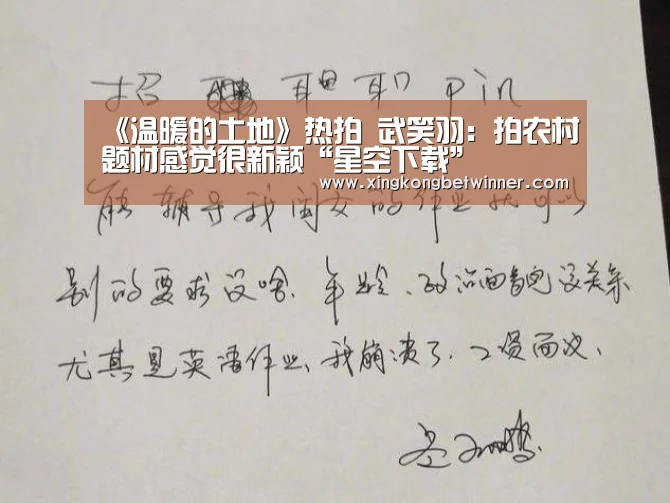 招 聘 耳 职 Pin
《温暖的土地》热拍 武笑羽：拍农村
题材感觉很新颖“星空下载”
www.xingkongbetwinner.com
能辅导我闺女的作业就可以
别的要求没啥、年龄、政治面貌没关系
尤其是英语作业、我崩溃了、工资面议、